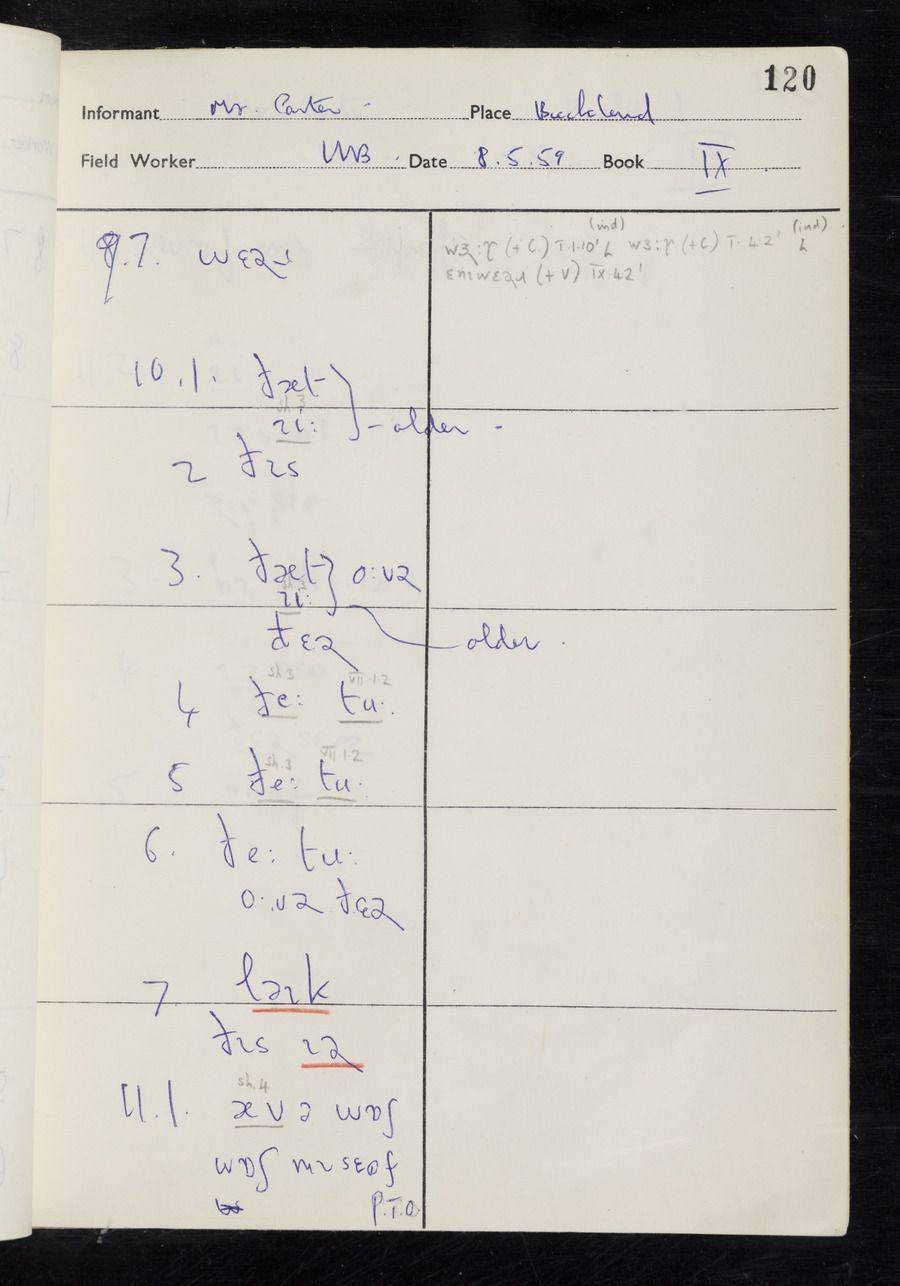 120
Informant Mr. Carter . Place Buckland
Field Worker WB . Date 8.5.59 Book IX
9.7. wɛəɹ
(ind) (ind)
(+C) I.1.10' L (+C) I.4.2' L
(+V) IX.42'
10.1. ðæt
sh 3
ɪi: } – older –
2 ðɪs
3. ðæt } o:və
sh 3
ɪi:
ðɛə older .
sh 3 VII.1.2
4 ðe: tu:
sh.3 VII 1.2
5 ðe: tu:
6. ðe: tu:
o:və ðɛə
7 ləɪk
ðɪs ɪə
sh.4
11.1. æv ə wɒʃ
wɒʃ mɪsɛɒf
P.T.O